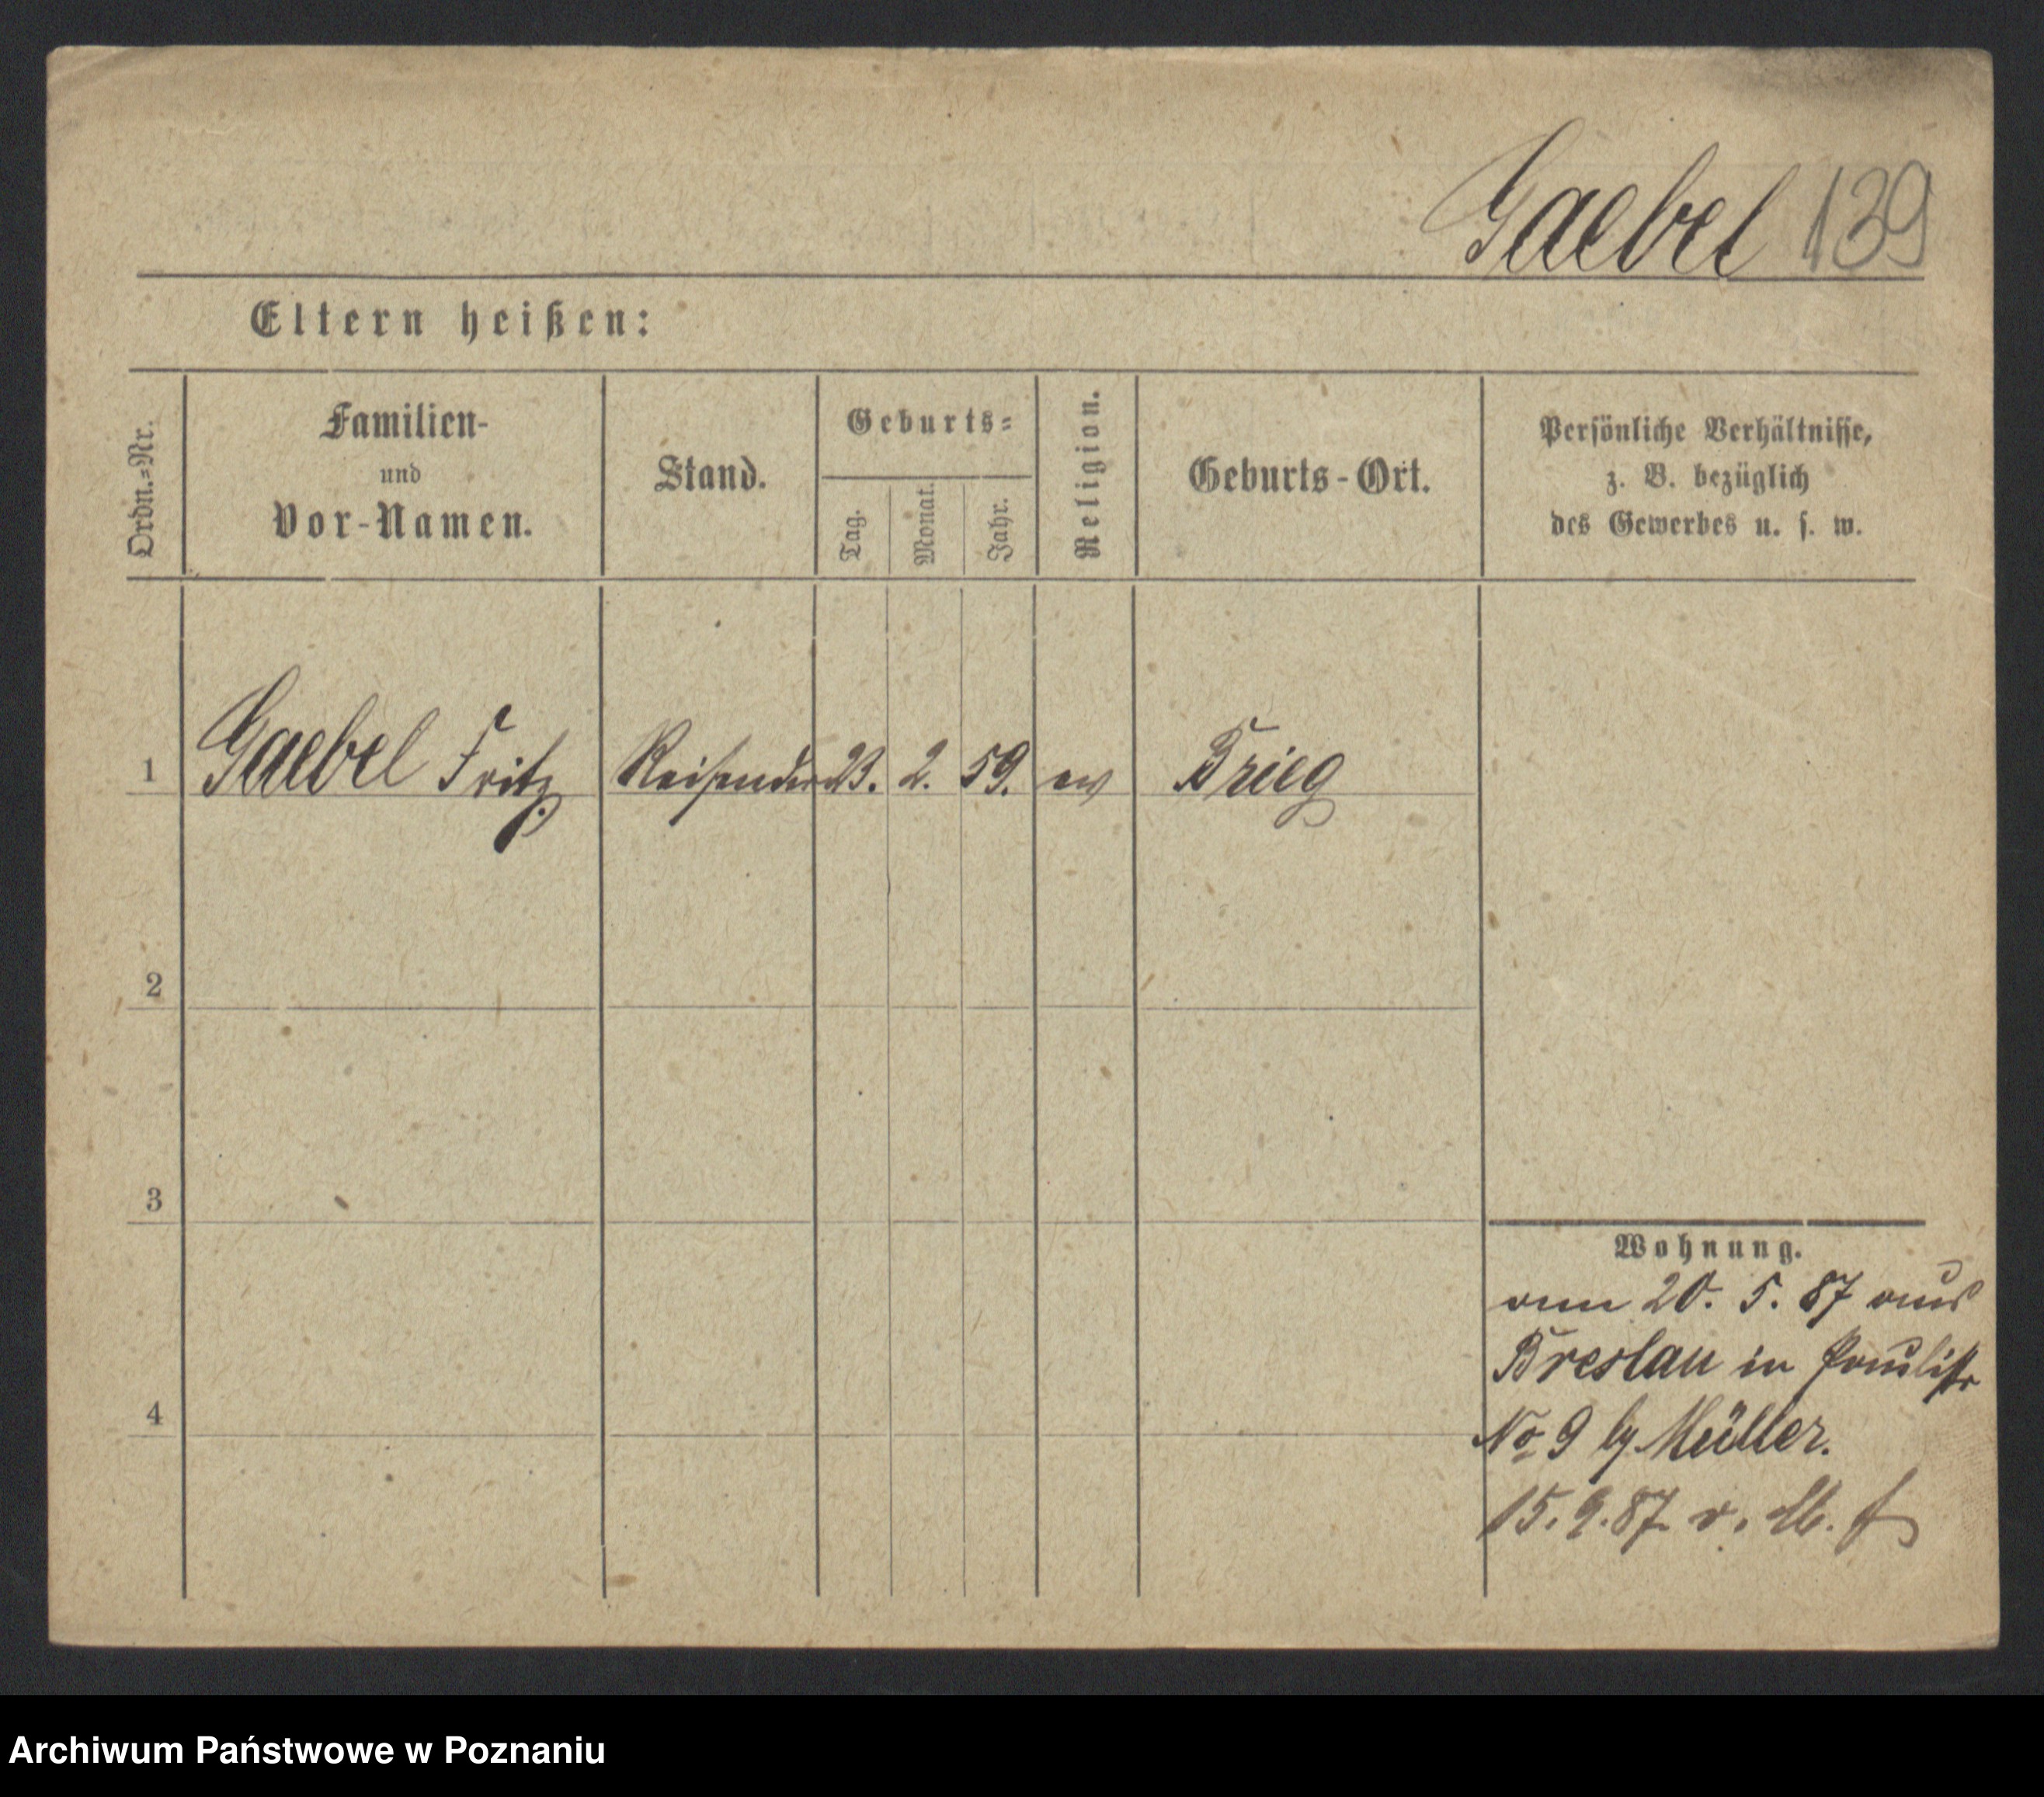 Gaebel 139
Eltern heißen:
Ordn.-Nr.
Familien-
und
Vor-Namen.
Stand.
Geburts-
Tag.
Monat.
Jahr.
Religion.
Geburts-Ort.
Persönliche Verhältnisse,
z. B. bezüglich
des Gewerbes u. s. w.
1 Gaebel Fritz Reisender 23. 2. 59. ev Brieg
2
3
4
Wohnung.
20. 5. 87 aus
Breslau in Paulistr
No 9 by Müller.
15. 9. 87 v.
Archiwum Państwowe w Poznaniu